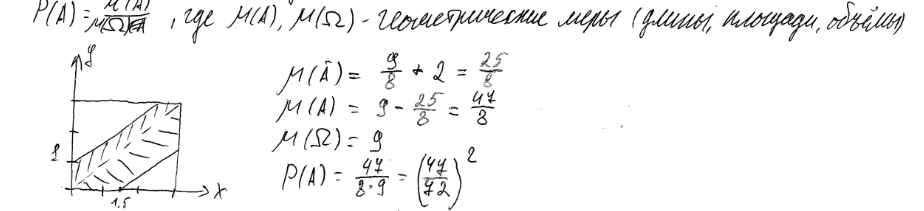 P(A) = M(A)/M(Ω), где M(A), M(Ω) - геометрические меры (длины, площади, объёмы)
y
M(Ā) = 9/8 + 2 = 25/8
M(A) = 9 - 25/8 = 47/8
M(Ω) = 9
1
P(A) = 47/8·9 = (47/72)²
1,5
x